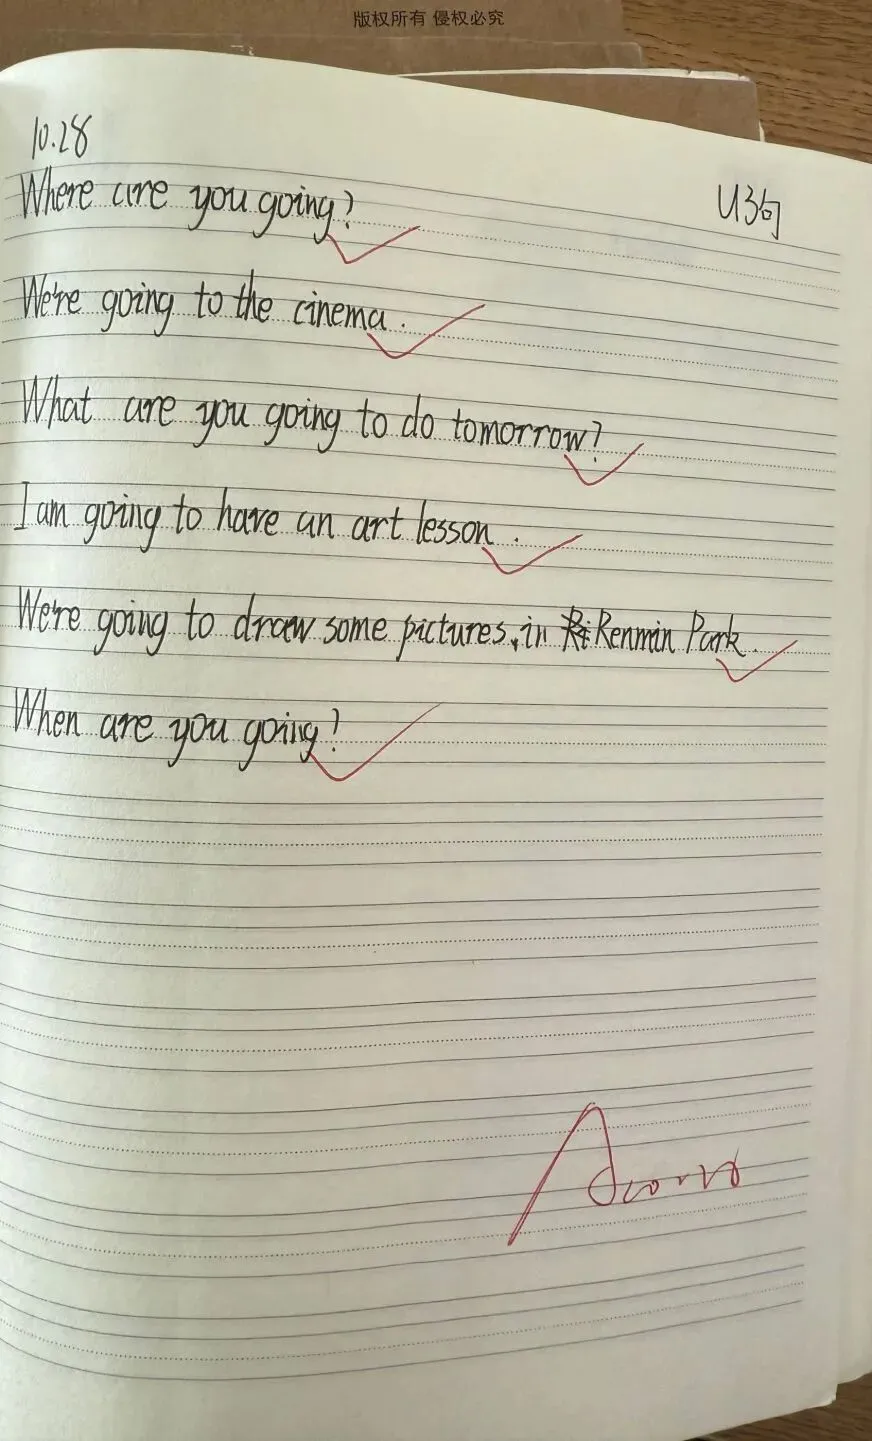 版权所有 侵权必究
10.28
U3句
Where are you going?
We're going to the cinema.
What are you going to do tomorrow?
I am going to have an art lesson.
We're going to draw some pictures in Renmin Park.
When are you going?